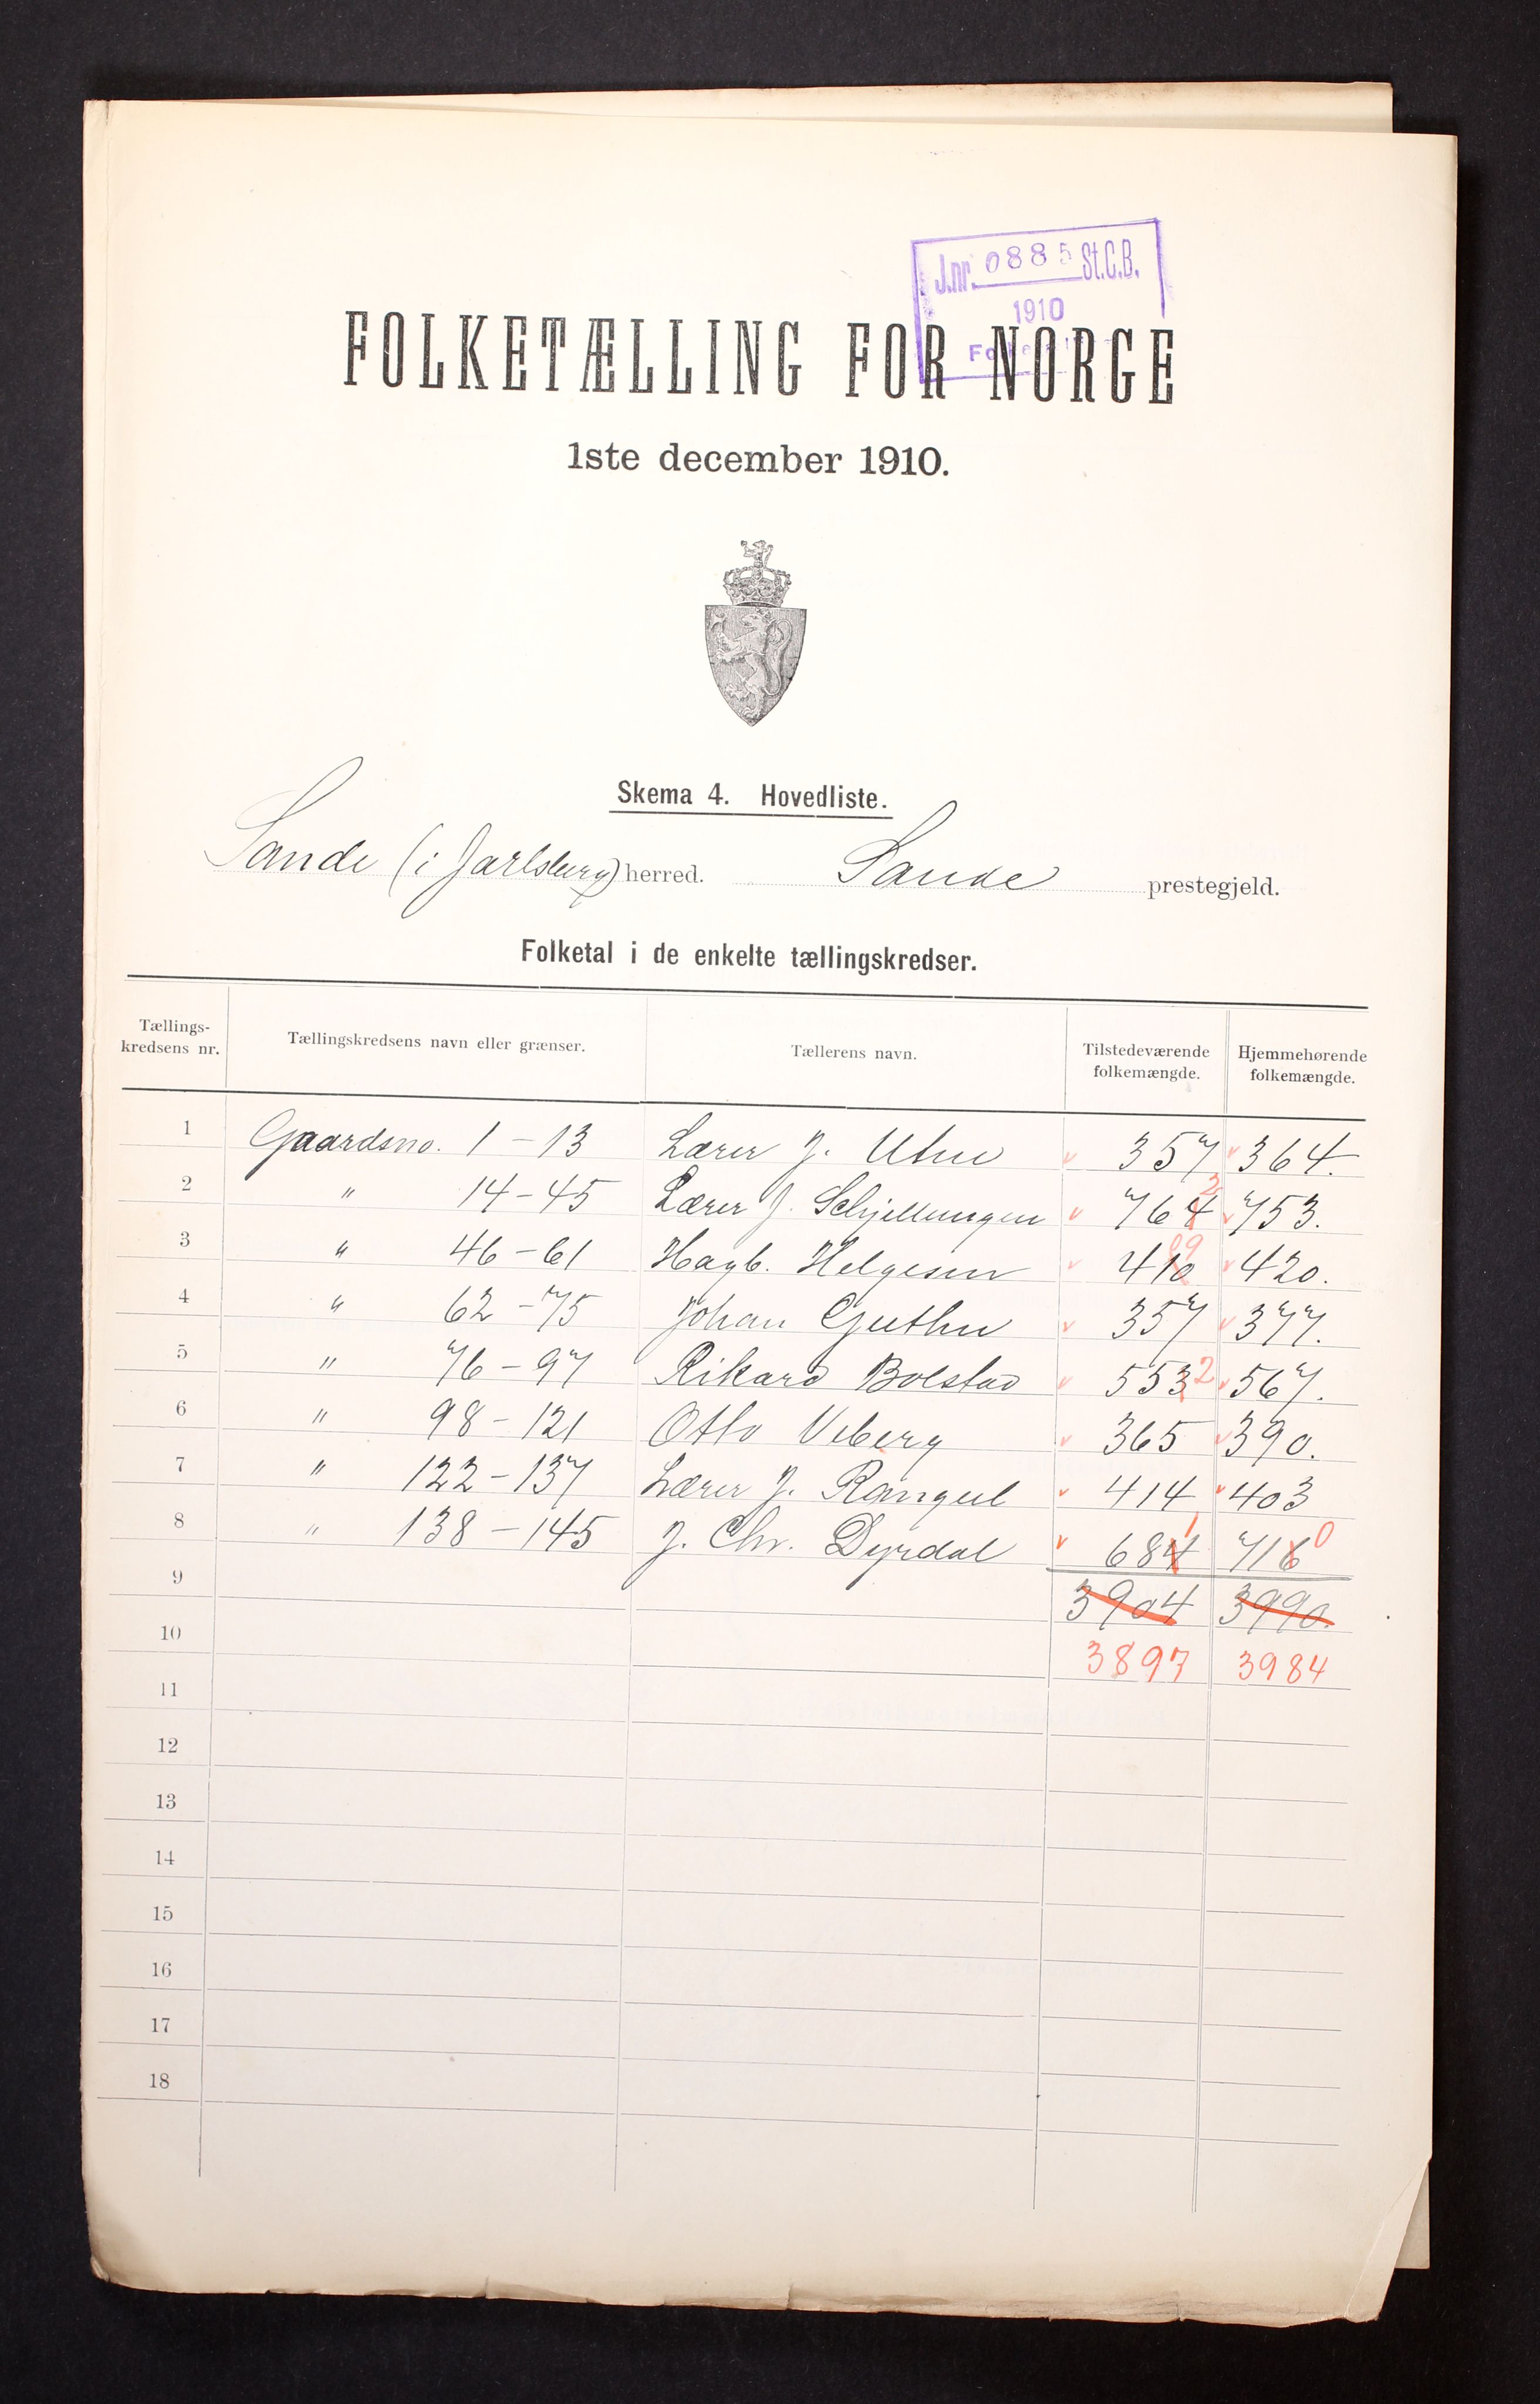 J.nr. 0885 St.C.B.
1910
FOLKETÆLLING FOR NORGE
1ste december 1910.
Skema 4. Hovedliste.
Sande (i Jarlsberg) herred. Sande prestegjeld.
Folketal i de enkelte tællingskredser.
Tællings-kredsens nr. Tællingskredsens navn eller grænser. Tællerens navn. Tilstedeværende folkemængde. Hjemmehørende folkemængde.
1 Gaardsno. 1 - 13 Lærer J. Utne v 357 v 364.
2 " 14 - 45 Lærer J. Schjellungen v 764 2 v 753.
3 " 46 - 61 Hagb. Helgesen v 410 09 v 420.
4 " 62 - 75 Johan Guthu v 357 v 377.
5 " 76 - 97 Rikard Bolstad v 553 2 v 567.
6 " 98 - 121 Otto Veberg v 365 v 390.
7 " 122 - 137 Lærer J. Rangul v 414 v 403
8 " 138 - 145 J. Chr. Dyrdal v 684 1 716 0
9 3904 3990.
10 3897 3984
11
12
13
14
15
16
17
18